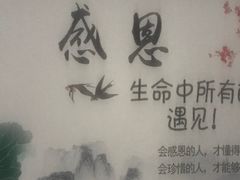 感恩
生命中所有
遇见!
会感恩的人，才懂得
会珍惜的人，才能够